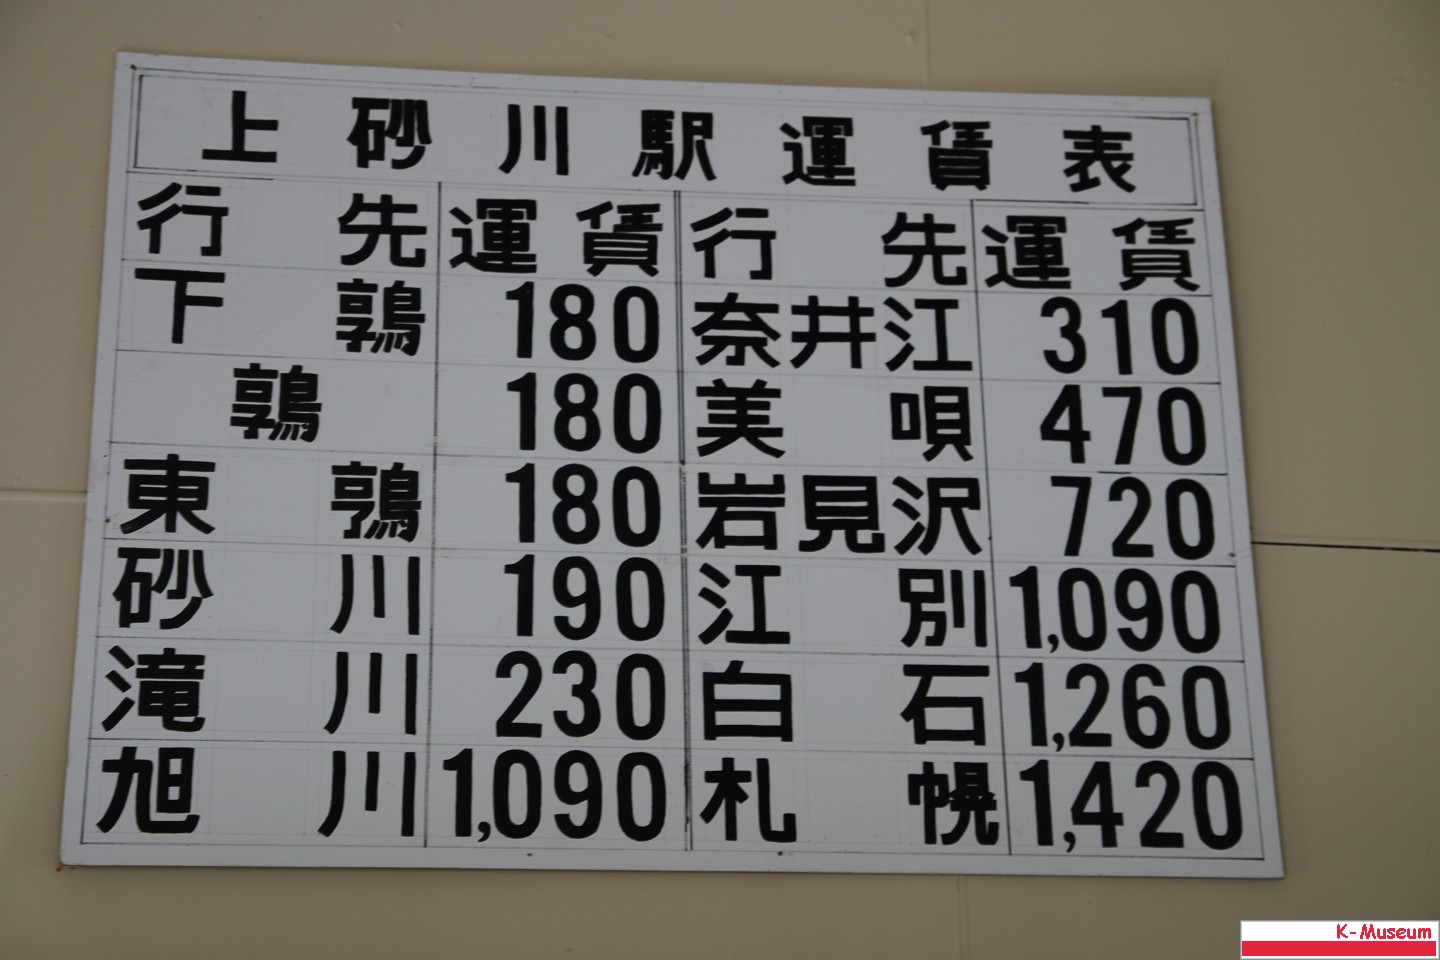 上砂川駅運賃表
行先 運賃 行先 運賃
下鶉 180 奈井江 310
鶉 180 美唄 470
東鶉 180 岩見沢 720
砂川 190 江別 1,090
滝川 230 白石 1,260
旭川 1,090 札幌 1,420
K-Museum